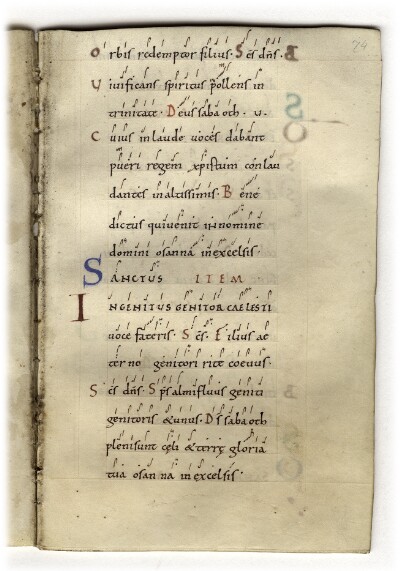 24
Orbis redemptor filius. Scs dns. B
Vivificans spiritus pollens in
trinitate. Deus sabaoth. v.
Cuius in laude voces dabant
pueri regem xpistum conlau
dantes in altissimis. Bene
dictus qui venit in nomine
domini osanna in excelsis
SANCTUS ITEM
INGENITUS GENITOR CAELESTI
voce fateris. Scs. Filius ae
terno genitori rite coevus.
Scs dns. Sps almifluus geniti
genitoris & unus. Ds sabaoth
pleni sunt cęli & terrę gloria
tua osanna in excelsis.